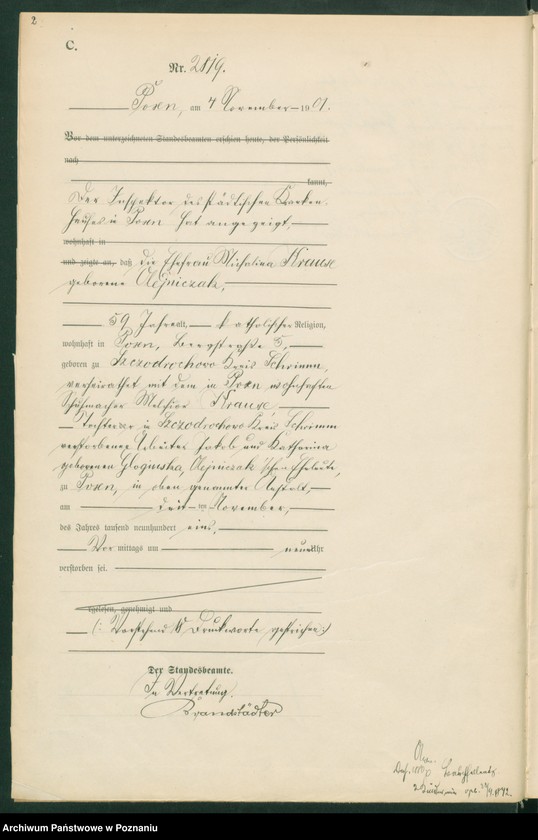 2
C.
Nr. 2819.
Posen, am 4 November 1901.
Vor dem unterzeichneten Standesbeamten erschien heute, der Persönlichkeit
nach
kannt,
Der Inspektor des städtischen Kranken
hauses in Posen hat angezeigt,
wohnhaft in
und zeigte an, daß die Ehefrau Michalina Krause
geborene Olejniczak,
59 Jahre alt, katholischer Religion,
wohnhaft in Posen, Bergstraße 5,
geboren zu Szczodrochowo Kreis Schrimm,
verheirathet mit dem in Posen wohnhaften
Schuhmacher Melchior Krause
Tochter der in Szczodrochowo Kreis Schrimm
verstorbenen Arbeiter Jakob und Katharina
geborenen Olejniczak'schen Eheleute,
zu Posen, in oben genannter Anstalt,
am drei ten November,
des Jahres tausend neunhundert eins,
Vor mittags um neun Uhr
verstorben sei.
gelesen, genehmigt und
(: Vorstehend Druckworte gestrichen :)
Der Standesbeamte.
In Vertretung.
Brandstädter
Archiwum Państwowe w Poznaniu